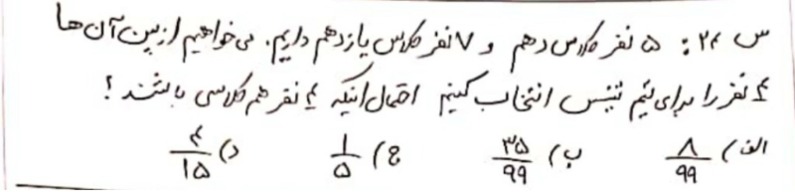 س ۲۴: ۵ نفر کلاس دهم و ۷ نفر کلاس یازدهم داریم. می‌خواهیم از بین آن‌ها
۴ نفر را برای تیم تنیس انتخاب کنیم احتمال اینکه ۴ نفر هم کلاسی باشند؟
الف) ۸/۹۹ ب) ۳۵/۹۹ ج) ۱/۵ د) ۴/۱۵